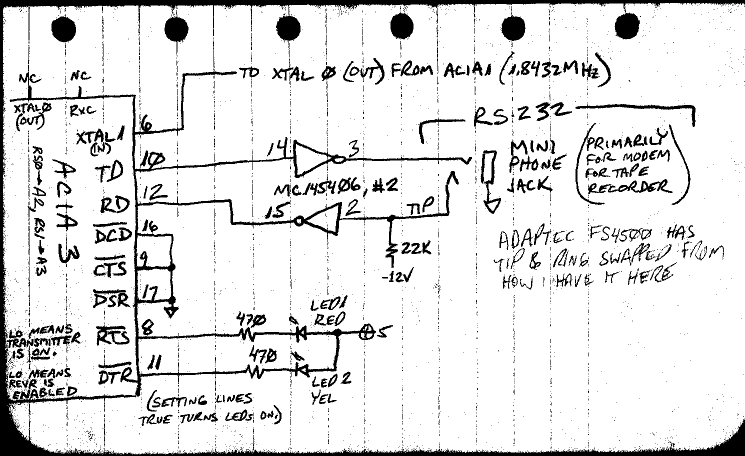 NC
NC
TO XTAL Ø (OUT) FROM ACIA1 (1.8432MHz)
XTALØ
(OUT)
RxC
XTAL1
(IN)
6
RS232
ACIA 3
RSØ→A2, RS1→A3
TD
10
14
3
MINI
PHONE
JACK
(PRIMARILY
FOR MODEM
FOR TAPE
RECORDER)
RD
12
MC145406, #2
15
2
TIP
DCD
16
CTS
9
DSR
17
22K
-12V
ADAPTEC FS4500 HAS
TIP & RING SWAPPED FROM
HOW I HAVE IT HERE
LO MEANS
TRANSMITTER
IS ON.
RTS
8
47Ø
LED1
RED
+5
LO MEANS
RCVR IS
ENABLED
DTR
11
47Ø
LED 2
YEL
(SETTING LINES
TRUE TURNS LEDS ON.)